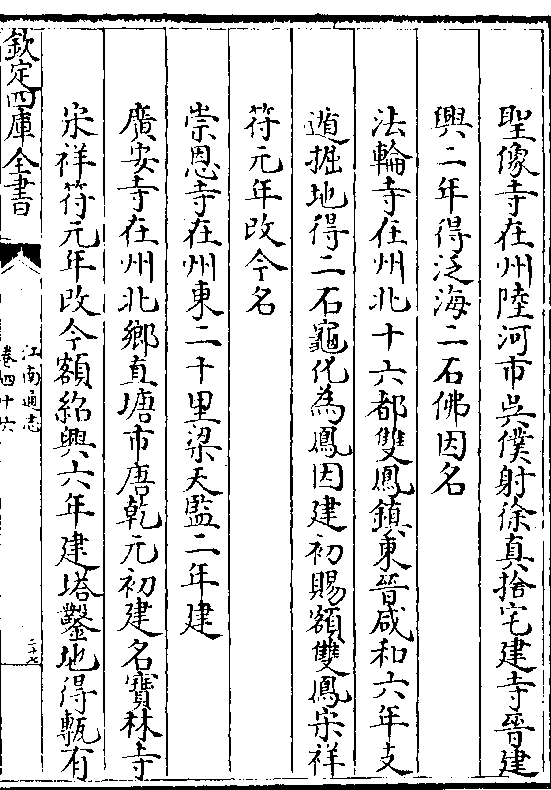 聖像寺在州陸河市吳僕射徐真捨宅建寺晉建
興二年得泛海二石佛因名
法輪寺在州北十六都雙鳳鎮東晉咸和六年支
遁掘地得二石龜化為鳳因建初賜額雙鳳宋祥
符元年改今名
崇恩寺在州東二十里梁天監二年建
廣安寺在州北鄉直塘市唐乾元初建名寶林寺
宋祥符元年改今額紹興六年建塔鑿地得甎有
欽定四庫全書
江南通志
卷四十六
二十七